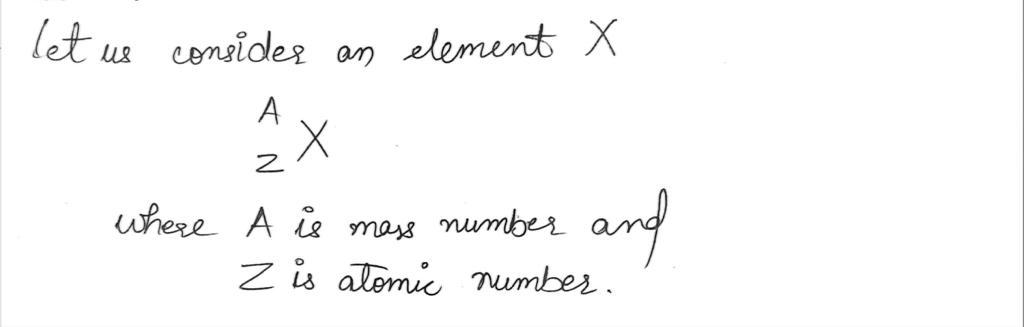 let us consider an element X
A
X
Z
where A is mass number and
Z is atomic number.